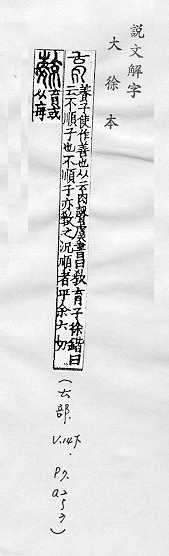 說文解字
大徐本
育 養子使作善也从𠫓肉聲虞書曰教育子徐鍇曰
𠫓不順子也不順子亦教之况順者乎余六切
毓 育或从每
(𠫓部.
V.14下.
P7.